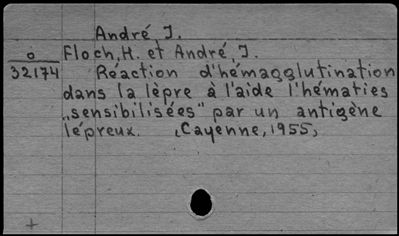 André J.
o Floch, H. et André, J.
32174 Réaction d'hémagglutination
dans la lèpre à l'aide l'hématies
„sensibilisées" par un antigène
lépreux. (Cayenne, 1955)
+